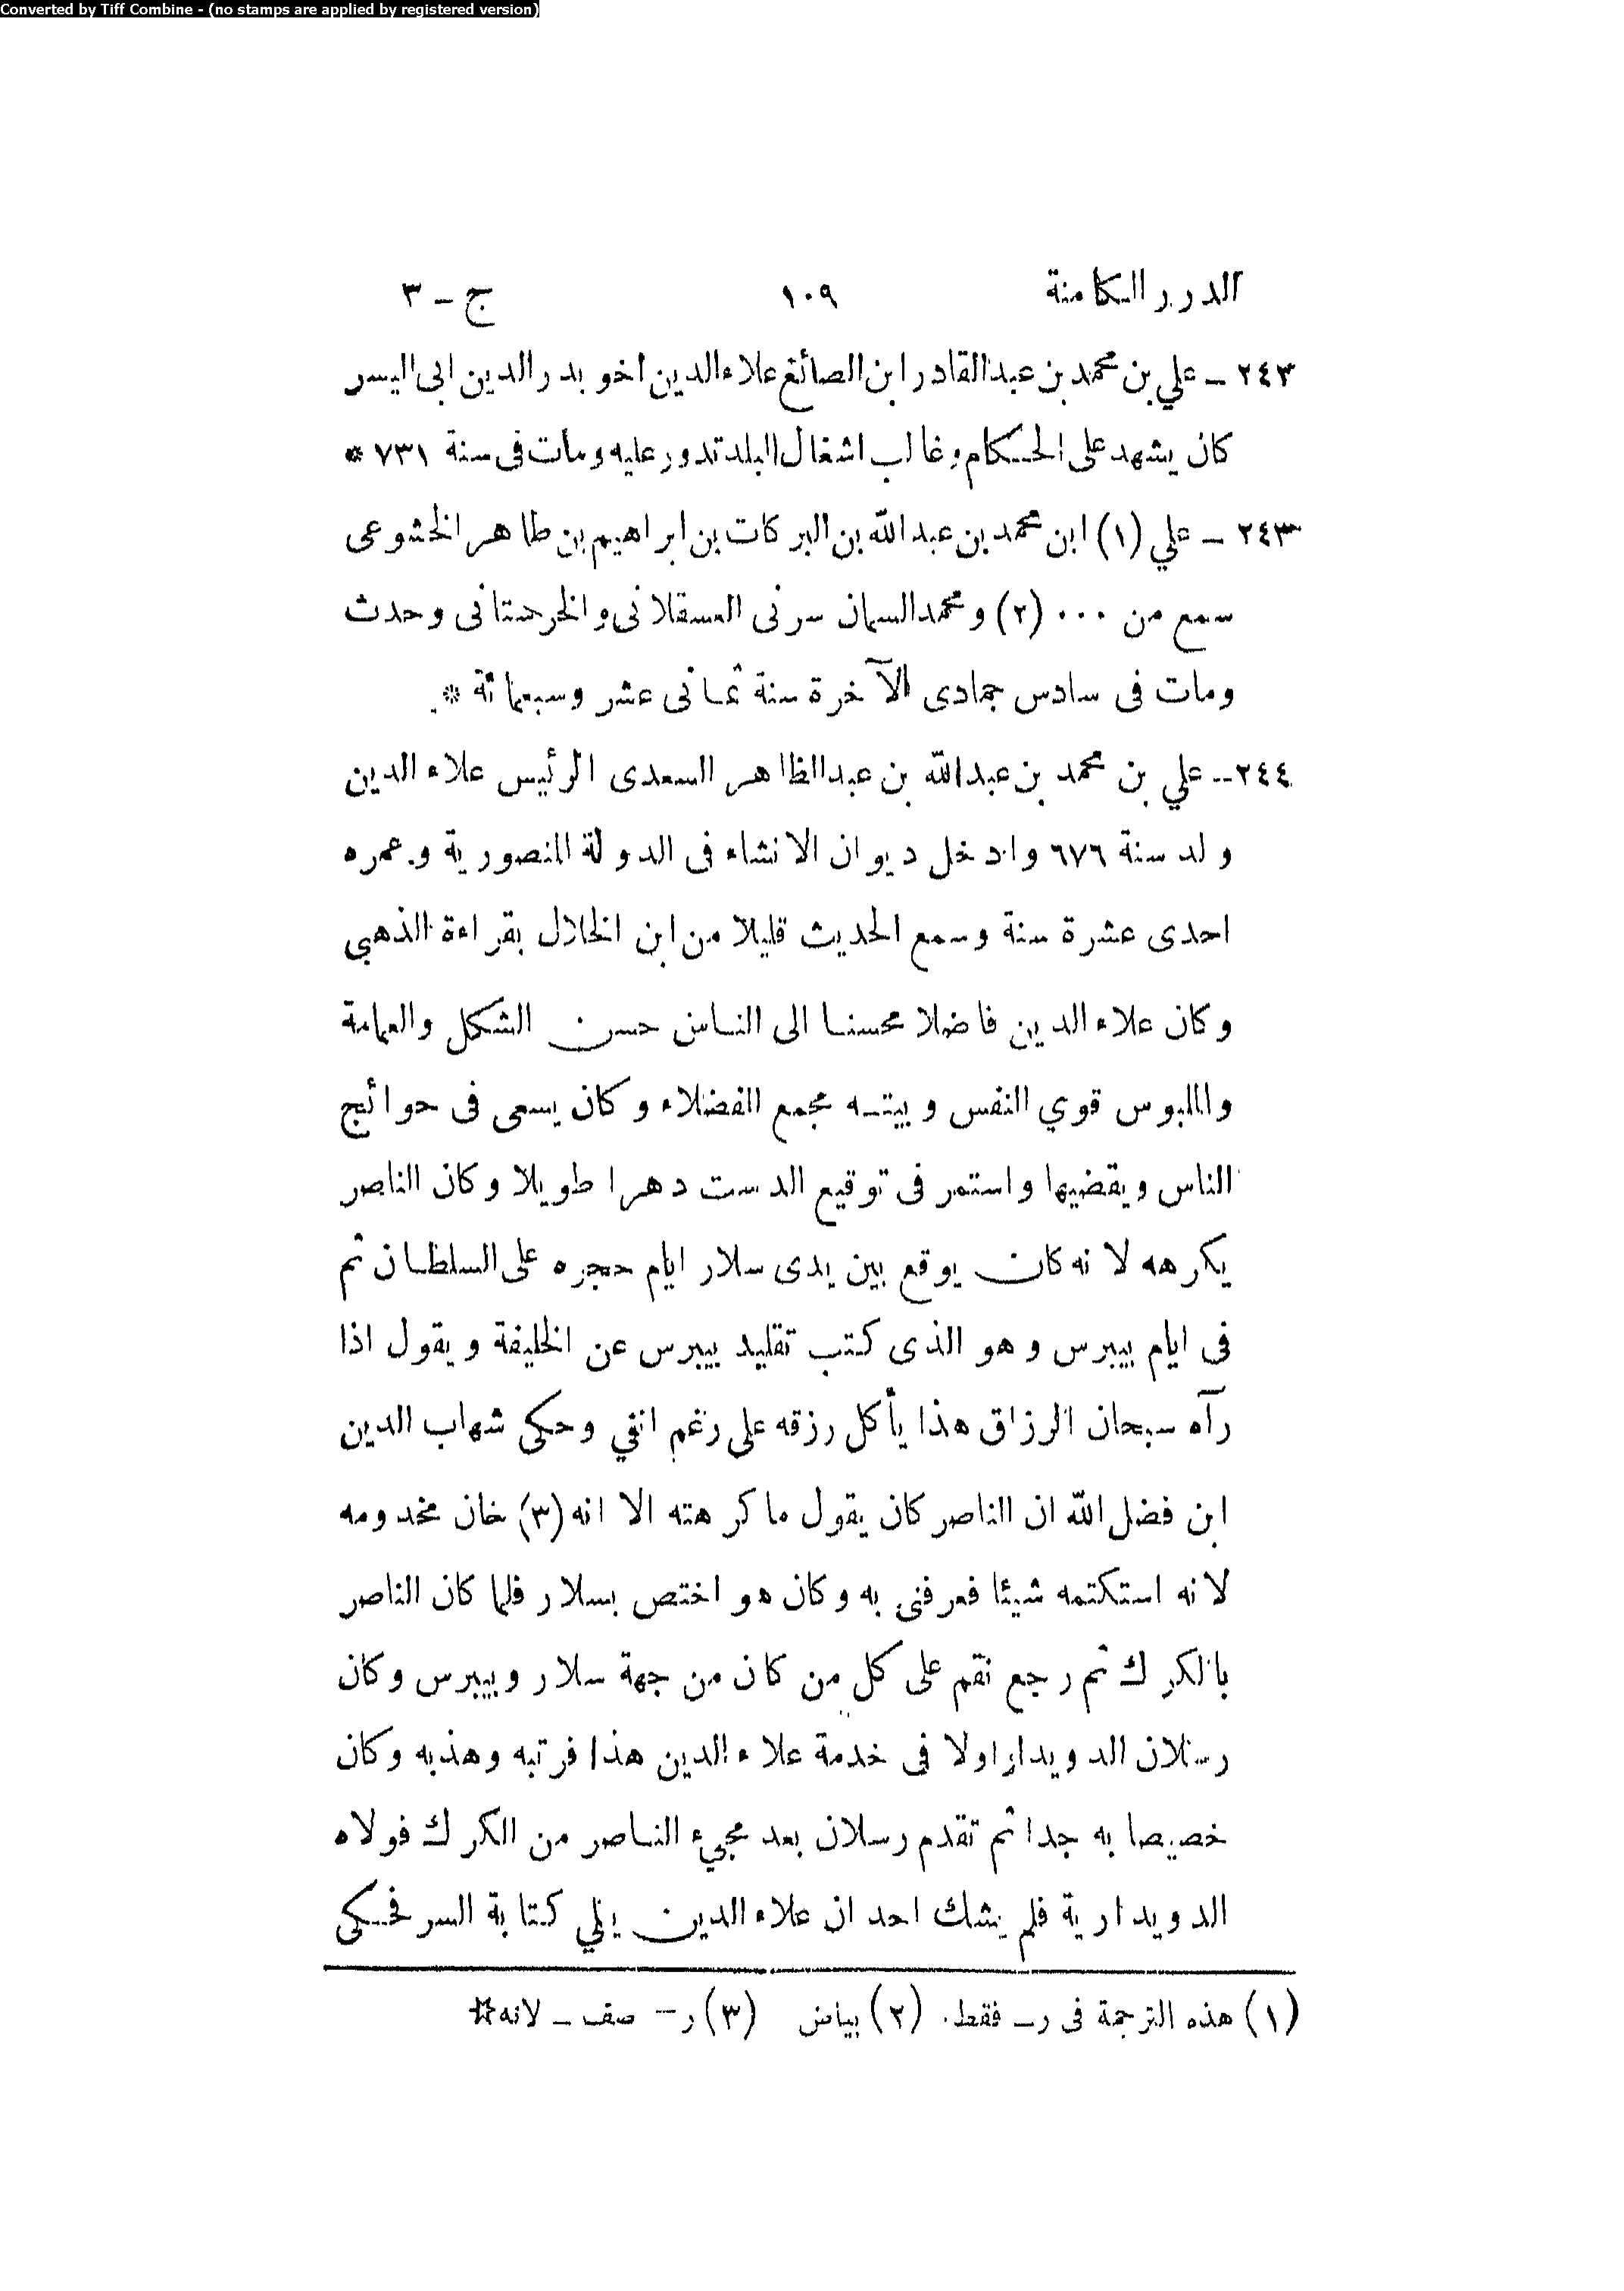 Converted by Tiff Combine - (no stamps are applied by registered version)
الدرر الكامنة ١٠٩ ج - ٣
٢٤٣ - علي بن محمد بن عبد القادر ابن الصائغ علاء الدين اخو بدر الدين ابى اليسر
كان يشهد على الحكام وغالب اشغال البلد تدور عليه ومات فى سنة ٧٣١ *
٢٤٣ - علي (١) ابن محمد بن عبد الله بن البركات بن ابراهيم بن طاهر الخشوعى
سمع من ٠٠٠ (٢) ومحمد السمان سرنى العسقلانى والخرستانى وحدث
ومات فى سادس جمادى الآخرة سنة ثمانى عشر وسبعمائة *
٢٤٤ - علي بن محمد بن عبد الله بن عبد الظاهر السعدى الرئيس علاء الدين
ولد سنة ٦٧٦ وادخل ديوان الانشاء فى الدولة المنصورية وعمره
احدى عشرة سنة وسمع الحديث قليلا من ابن الخلال بقراءة الذهبي
وكان علاء الدين فاضلا محسنا الى الناس حسن الشكل والعمامة
والملبوس قوي النفس وبيته مجمع الفضلاء وكان يسعى فى حوائج
الناس ويقضيها واستمر فى توقيع الدست دهرا طويلا وكان الناصر
يكرهه لانه كان يوقع بين يدى سلار ايام حجره على السلطان ثم
فى ايام بيبرس وهو الذى كتب تقليد بيبرس عن الخليفة ويقول اذا
رآه سبحان الرزاق هذا يأكل رزقه على رغم انفي وحكى شهاب الدين
ابن فضل الله ان الناصر كان يقول ما كرهته الا انه (٣) خان مخدومه
لانه استكتمه شيئا فعرفنى به وكان هو اختص بسلار فلما كان الناصر
بالكرك ثم رجع نقم على كل من كان من جهة سلار وبيبرس وكان
رسلان الدويدار اولا فى خدمة علاء الدين هذا فرتبه وهذبه وكان
خصيصا به جدا ثم تقدم رسلان بعد مجيء الناصر من الكرك فولاه
الدويدارية فلم يشك احد ان علاء الدين يلي كتابة السر فحكى
(١) هذه الترجمة فى ر - فقط. (٢) بياض (٣) ر - صف - لانه *